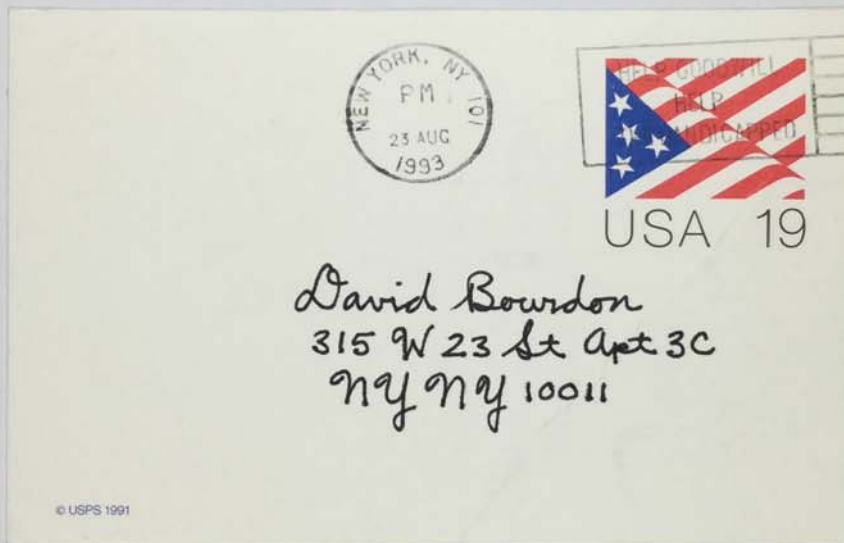 NEW YORK, NY 101
PM
23 AUG
1993
HELP GOODWILL
HELP
HANDICAPPED
USA 19
David Bourdon
315 W 23 St Apt 3C
NY NY 10011
© USPS 1991